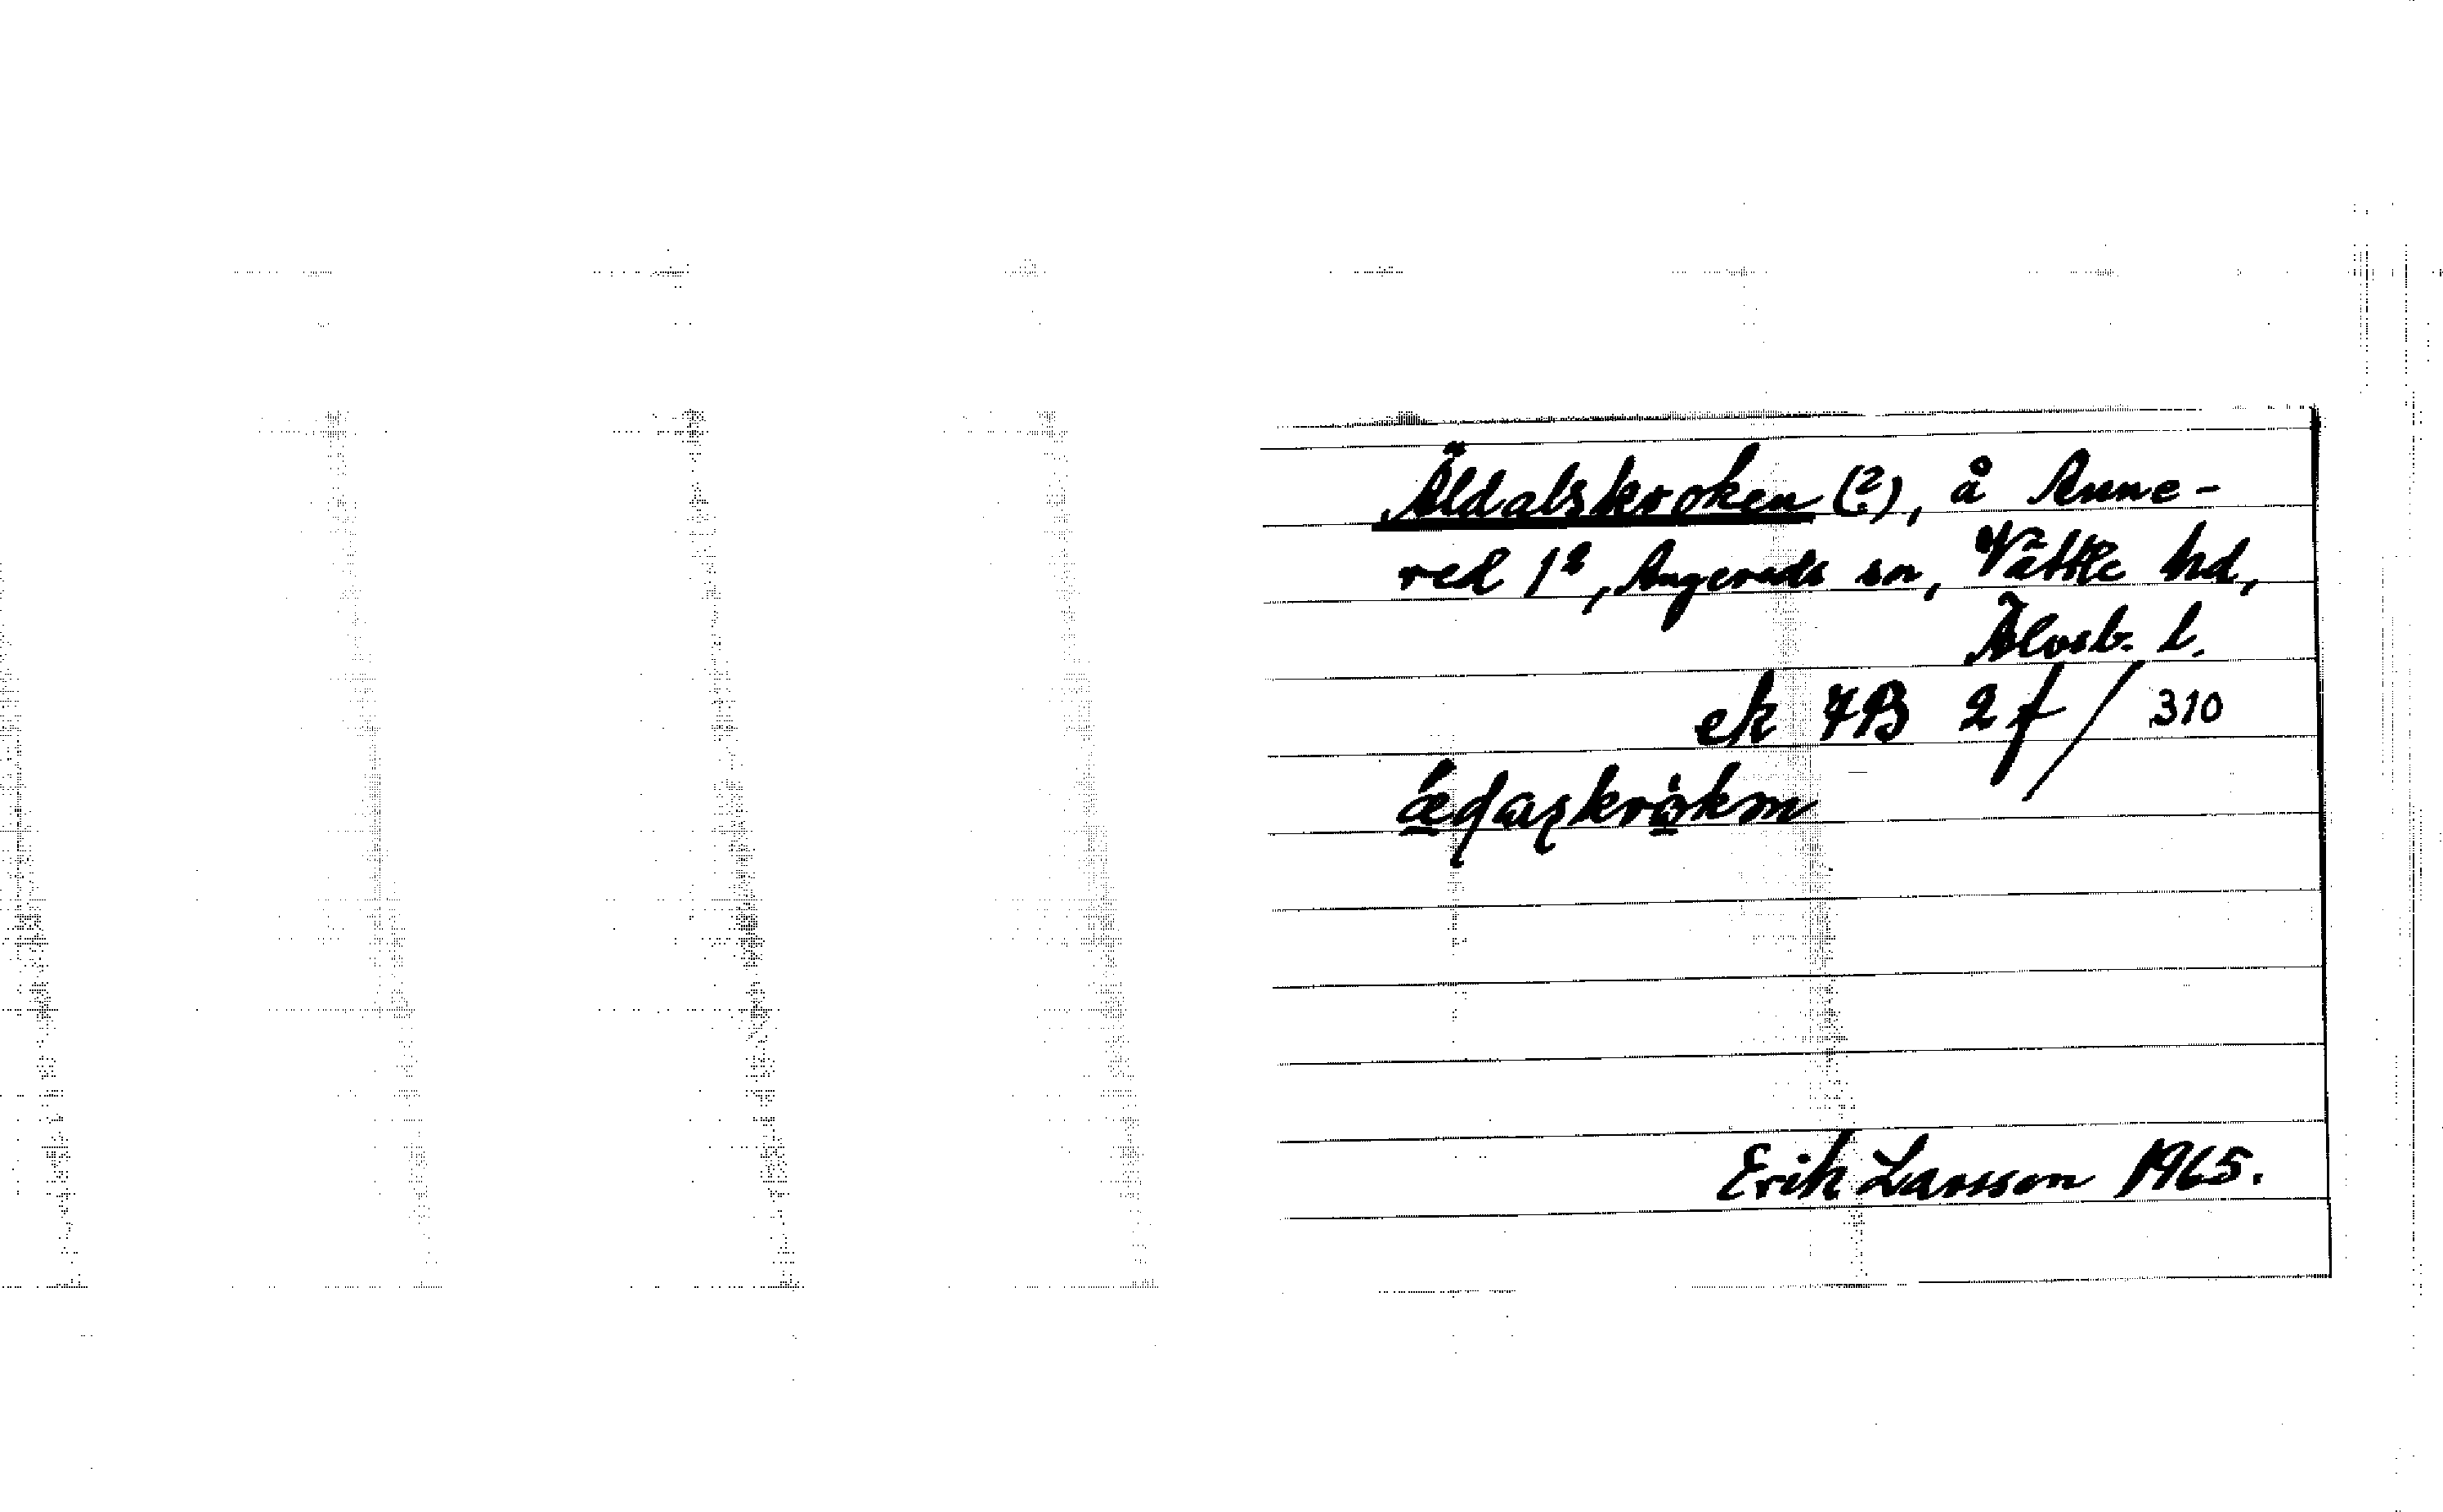 Äldalskroken (?), å Anne-
red 1², Angereds sn, Vättle hd,
Älvsb. l.
ek 7B 2f / 310
Erik Larsson 1965.